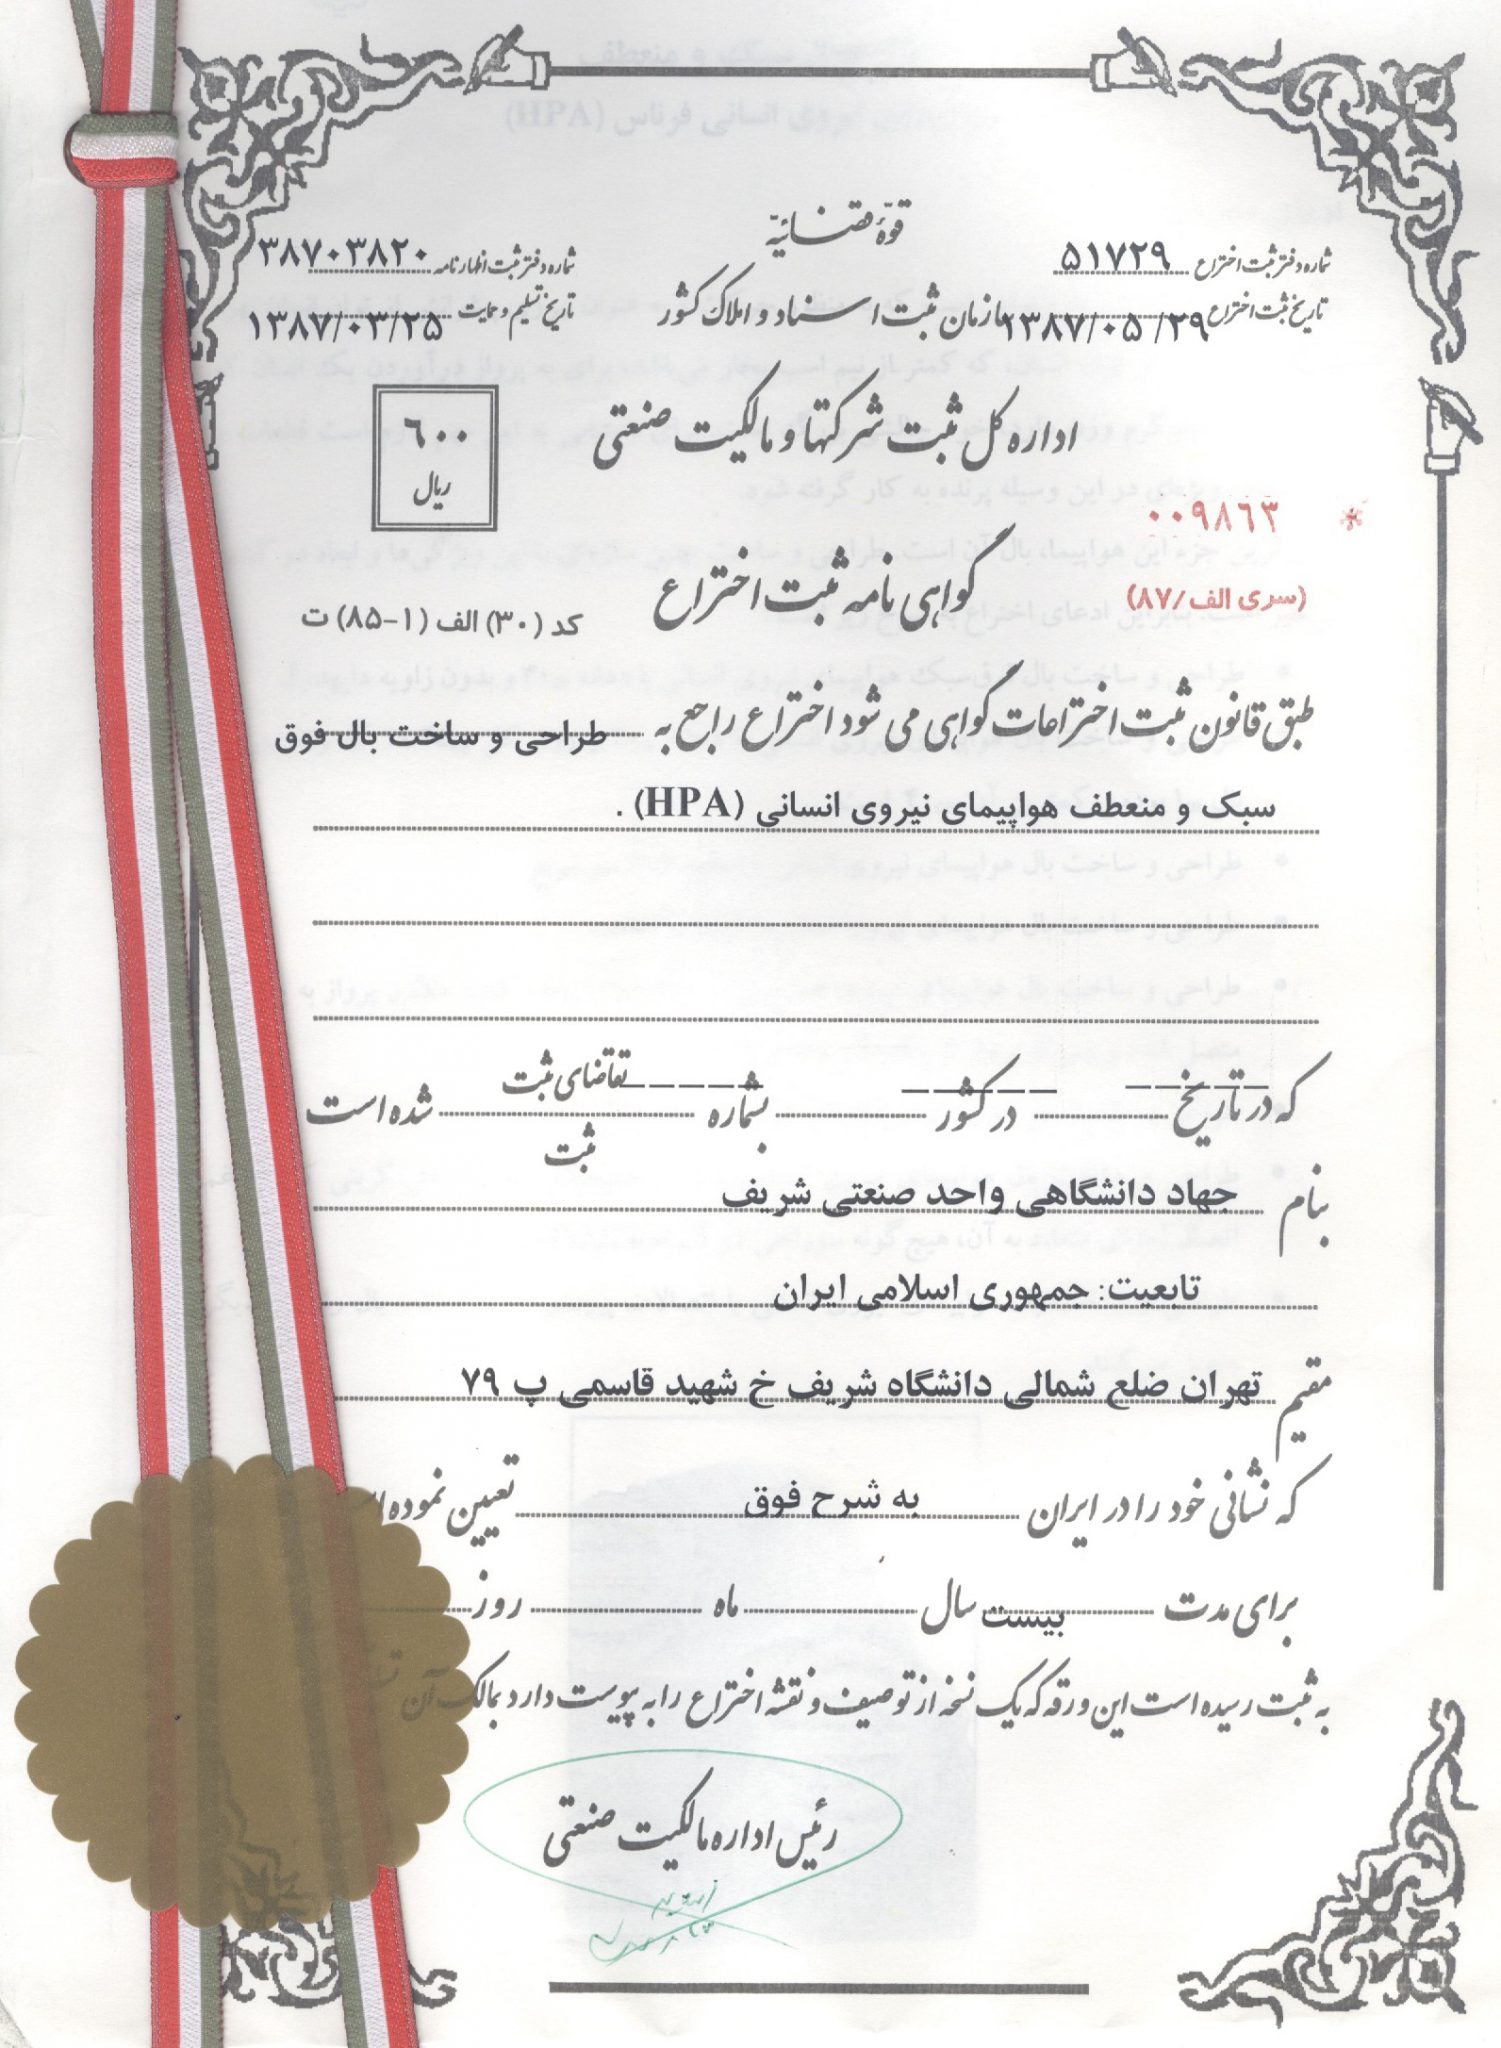 قوّهٔ قضائیّه
شماره دفتر ثبت اختراع ۵۱۷۲۹
شماره دفتر ثبت اظهارنامه ۳۸۷۰۳۸۲۰
سازمان ثبت اسناد و املاک کشور
تاریخ ثبت اختراع ۱۳۸۷/۰۵/۲۹
تاریخ تسلیم و حمایت ۱۳۸۷/۰۳/۲۵
اداره کل ثبت شرکتها و مالکیت صنعتی
۶۰۰
ریال
* ۰۰۹۸۶۳
(سری الف/۸۷)
گواهی نامه ثبت اختراع
کد (۳۰) الف (۱-۸۵) ت
طبق قانون ثبت اختراعات گواهی می شود اختراع راجع به طراحی و ساخت بال فوق
سبک و منعطف هواپیمای نیروی انسانی (HPA) .
که در تاریخ ------ در کشور ------ بشماره ------ تقاضای ثبت
ثبت شده است
بنام جهاد دانشگاهی واحد صنعتی شریف
تابعیت: جمهوری اسلامی ایران
مقیم تهران ضلع شمالی دانشگاه شریف خ شهید قاسمی پ ۷۹
که نشانی خود را در ایران به شرح فوق تعیین نموده
برای مدت بیست سال ماه روز
به ثبت رسیده است این ورقه که یک نسخه از توصیف و نقشه اختراع را به پیوست دارد بمالک آن
رئیس اداره مالکیت صنعتی